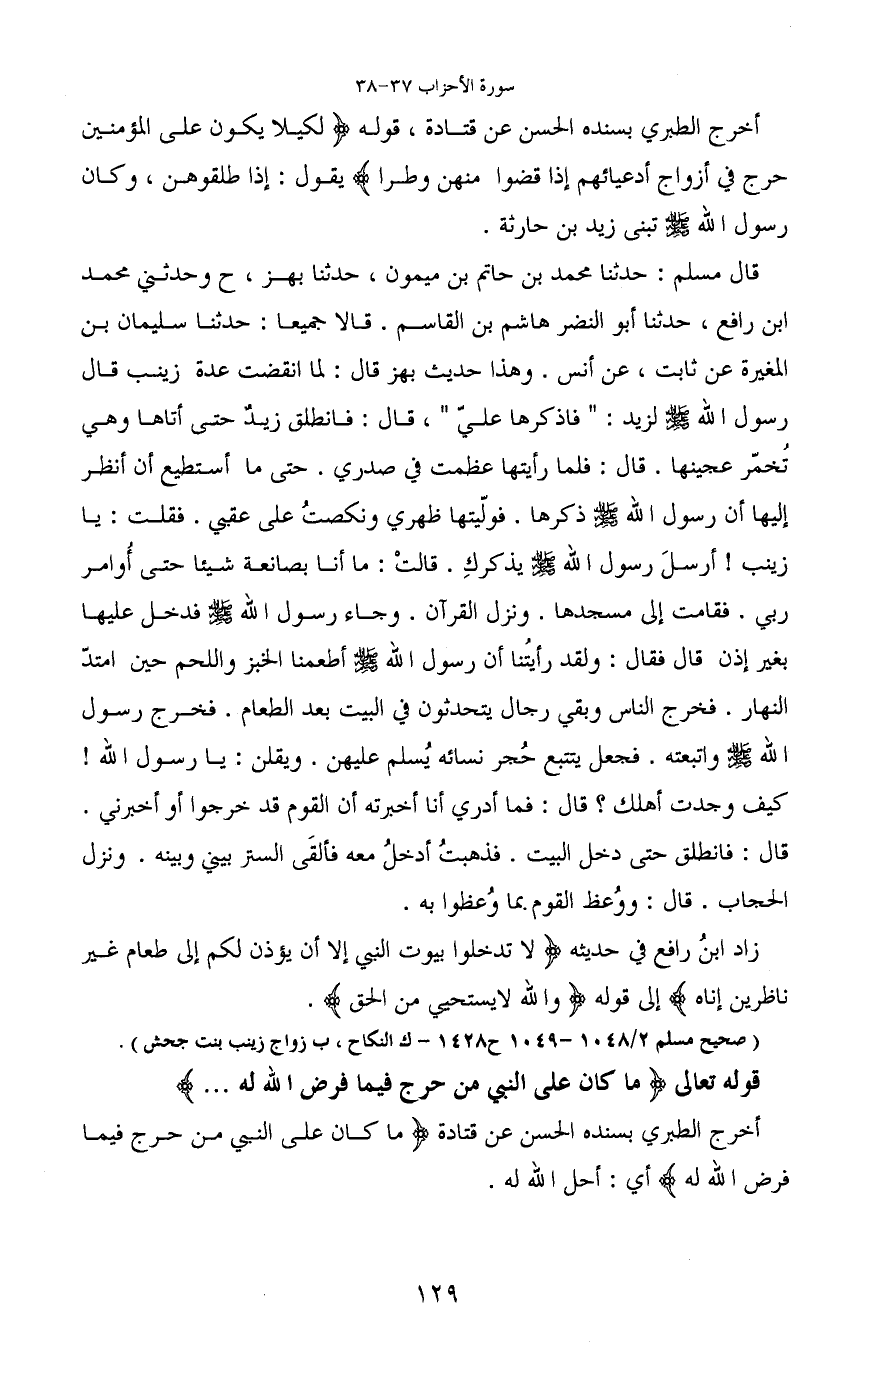 سورة الأحزاب ٣٧-٣٨
أخرج الطبري بسنده الحسن عن قتادة ، قوله ﴿ لكيلا يكون على المؤمنين
حرج في أزواج أدعيائهم إذا قضوا منهن وطرا ﴾ يقول : إذا طلقوهن ، وكان
رسول الله ﷺ تبنى زيد بن حارثة .
قال مسلم : حدثنا محمد بن حاتم بن ميمون ، حدثنا بهز ، ح وحدثني محمد
ابن رافع ، حدثنا أبو النضر هاشم بن القاسم . قالا جميعا : حدثنا سليمان بن
المغيرة عن ثابت ، عن أنس . وهذا حديث بهز قال : لما انقضت عدة زينب قال
رسول الله ﷺ لزيد : " فاذكرها عليّ " ، قال : فانطلق زيدٌ حتى أتاها وهي
تُخمّر عجينها . قال : فلما رأيتها عظمت في صدري . حتى ما أستطيع أن أنظر
إليها أن رسول الله ﷺ ذكرها . فولّيتها ظهري ونكصتُ على عقبي . فقلت : يا
زينب ! أرسلَ رسول الله ﷺ يذكركِ . قالتْ : ما أنا بصانعة شيئا حتى أُوامر
ربي . فقامت إلى مسجدها . ونزل القرآن . وجاء رسول الله ﷺ فدخل عليها
بغير إذن قال فقال : ولقد رأيتُنا أن رسول الله ﷺ أطعمنا الخبز واللحم حين امتدّ
النهار . فخرج الناس وبقي رجال يتحدثون في البيت بعد الطعام . فخرج رسول
الله ﷺ واتبعته . فجعل يتتبع حُجر نسائه يُسلم عليهن . ويقلن : يا رسول الله !
كيف وجدت أهلك ؟ قال : فما أدري أنا أخبرته أن القوم قد خرجوا أو أخبرني .
قال : فانطلق حتى دخل البيت . فذهبتُ أدخلُ معه فألقَى الستر بيني وبينه . ونزل
الحجاب . قال : ووُعظ القوم بما وُعظوا به .
زاد ابنُ رافع في حديثه ﴿ لا تدخلوا بيوت النبي إلا أن يؤذن لكم إلى طعام غير
ناظرين إناه ﴾ إلى قوله ﴿ والله لايستحيي من الحق ﴾ .
( صحيح مسلم ١٠٤٨/٢ -١٠٤٩ ح١٤٢٨ - ك النكاح ، ب زواج زينب بنت جحش ) .
قوله تعالى ﴿ ما كان على النبي من حرج فيما فرض الله له ... ﴾
أخرج الطبري بسنده الحسن عن قتادة ﴿ ما كان على النبي من حرج فيما
فرض الله له ﴾ أي : أحل الله له .
١٢٩